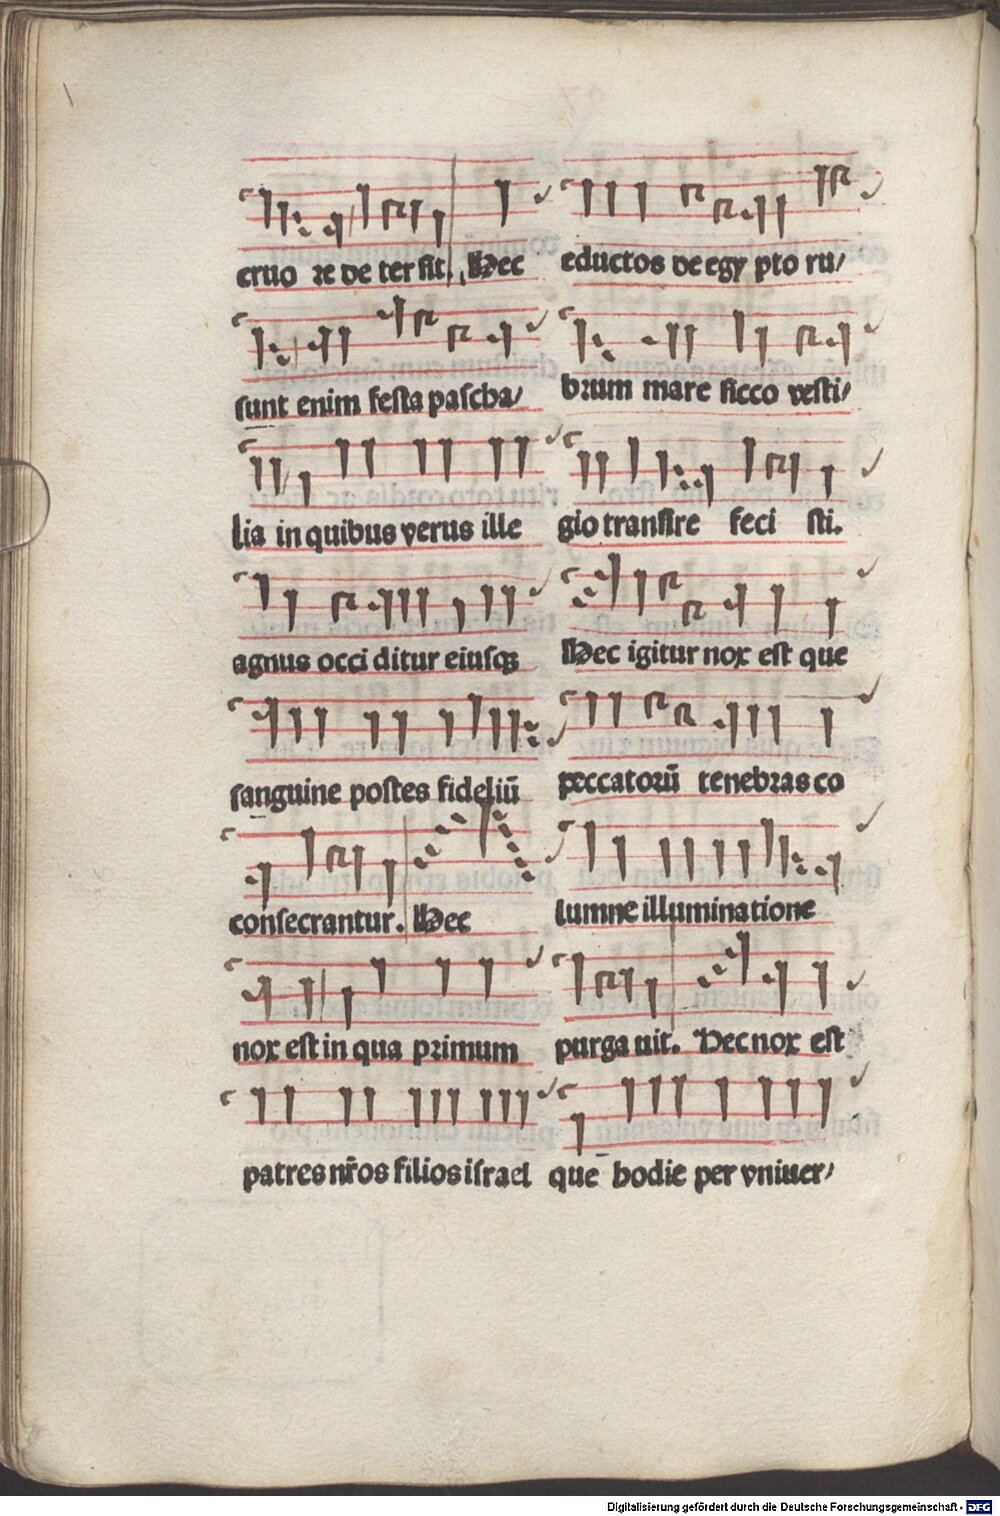 cruo re de ter sit. Hec
sunt enim festa pascha/
lia in quibus verus ille
agnus occi ditur eiusqꝫ
sanguine postes fideliū
consecrantur. Hec
nox est in qua primum
patres nr̄os filios israel
eductos de egy pto ru/
brum mare sicco vesti/
gio transire feci sti.
Hec igitur nox est que
peccatorū tenebras co
lumne illuminatione
purga uit. Hec nox est
que hodie per vniuer/
Digitalisierung gefördert durch die Deutsche Forschungsgemeinschaft - DFG